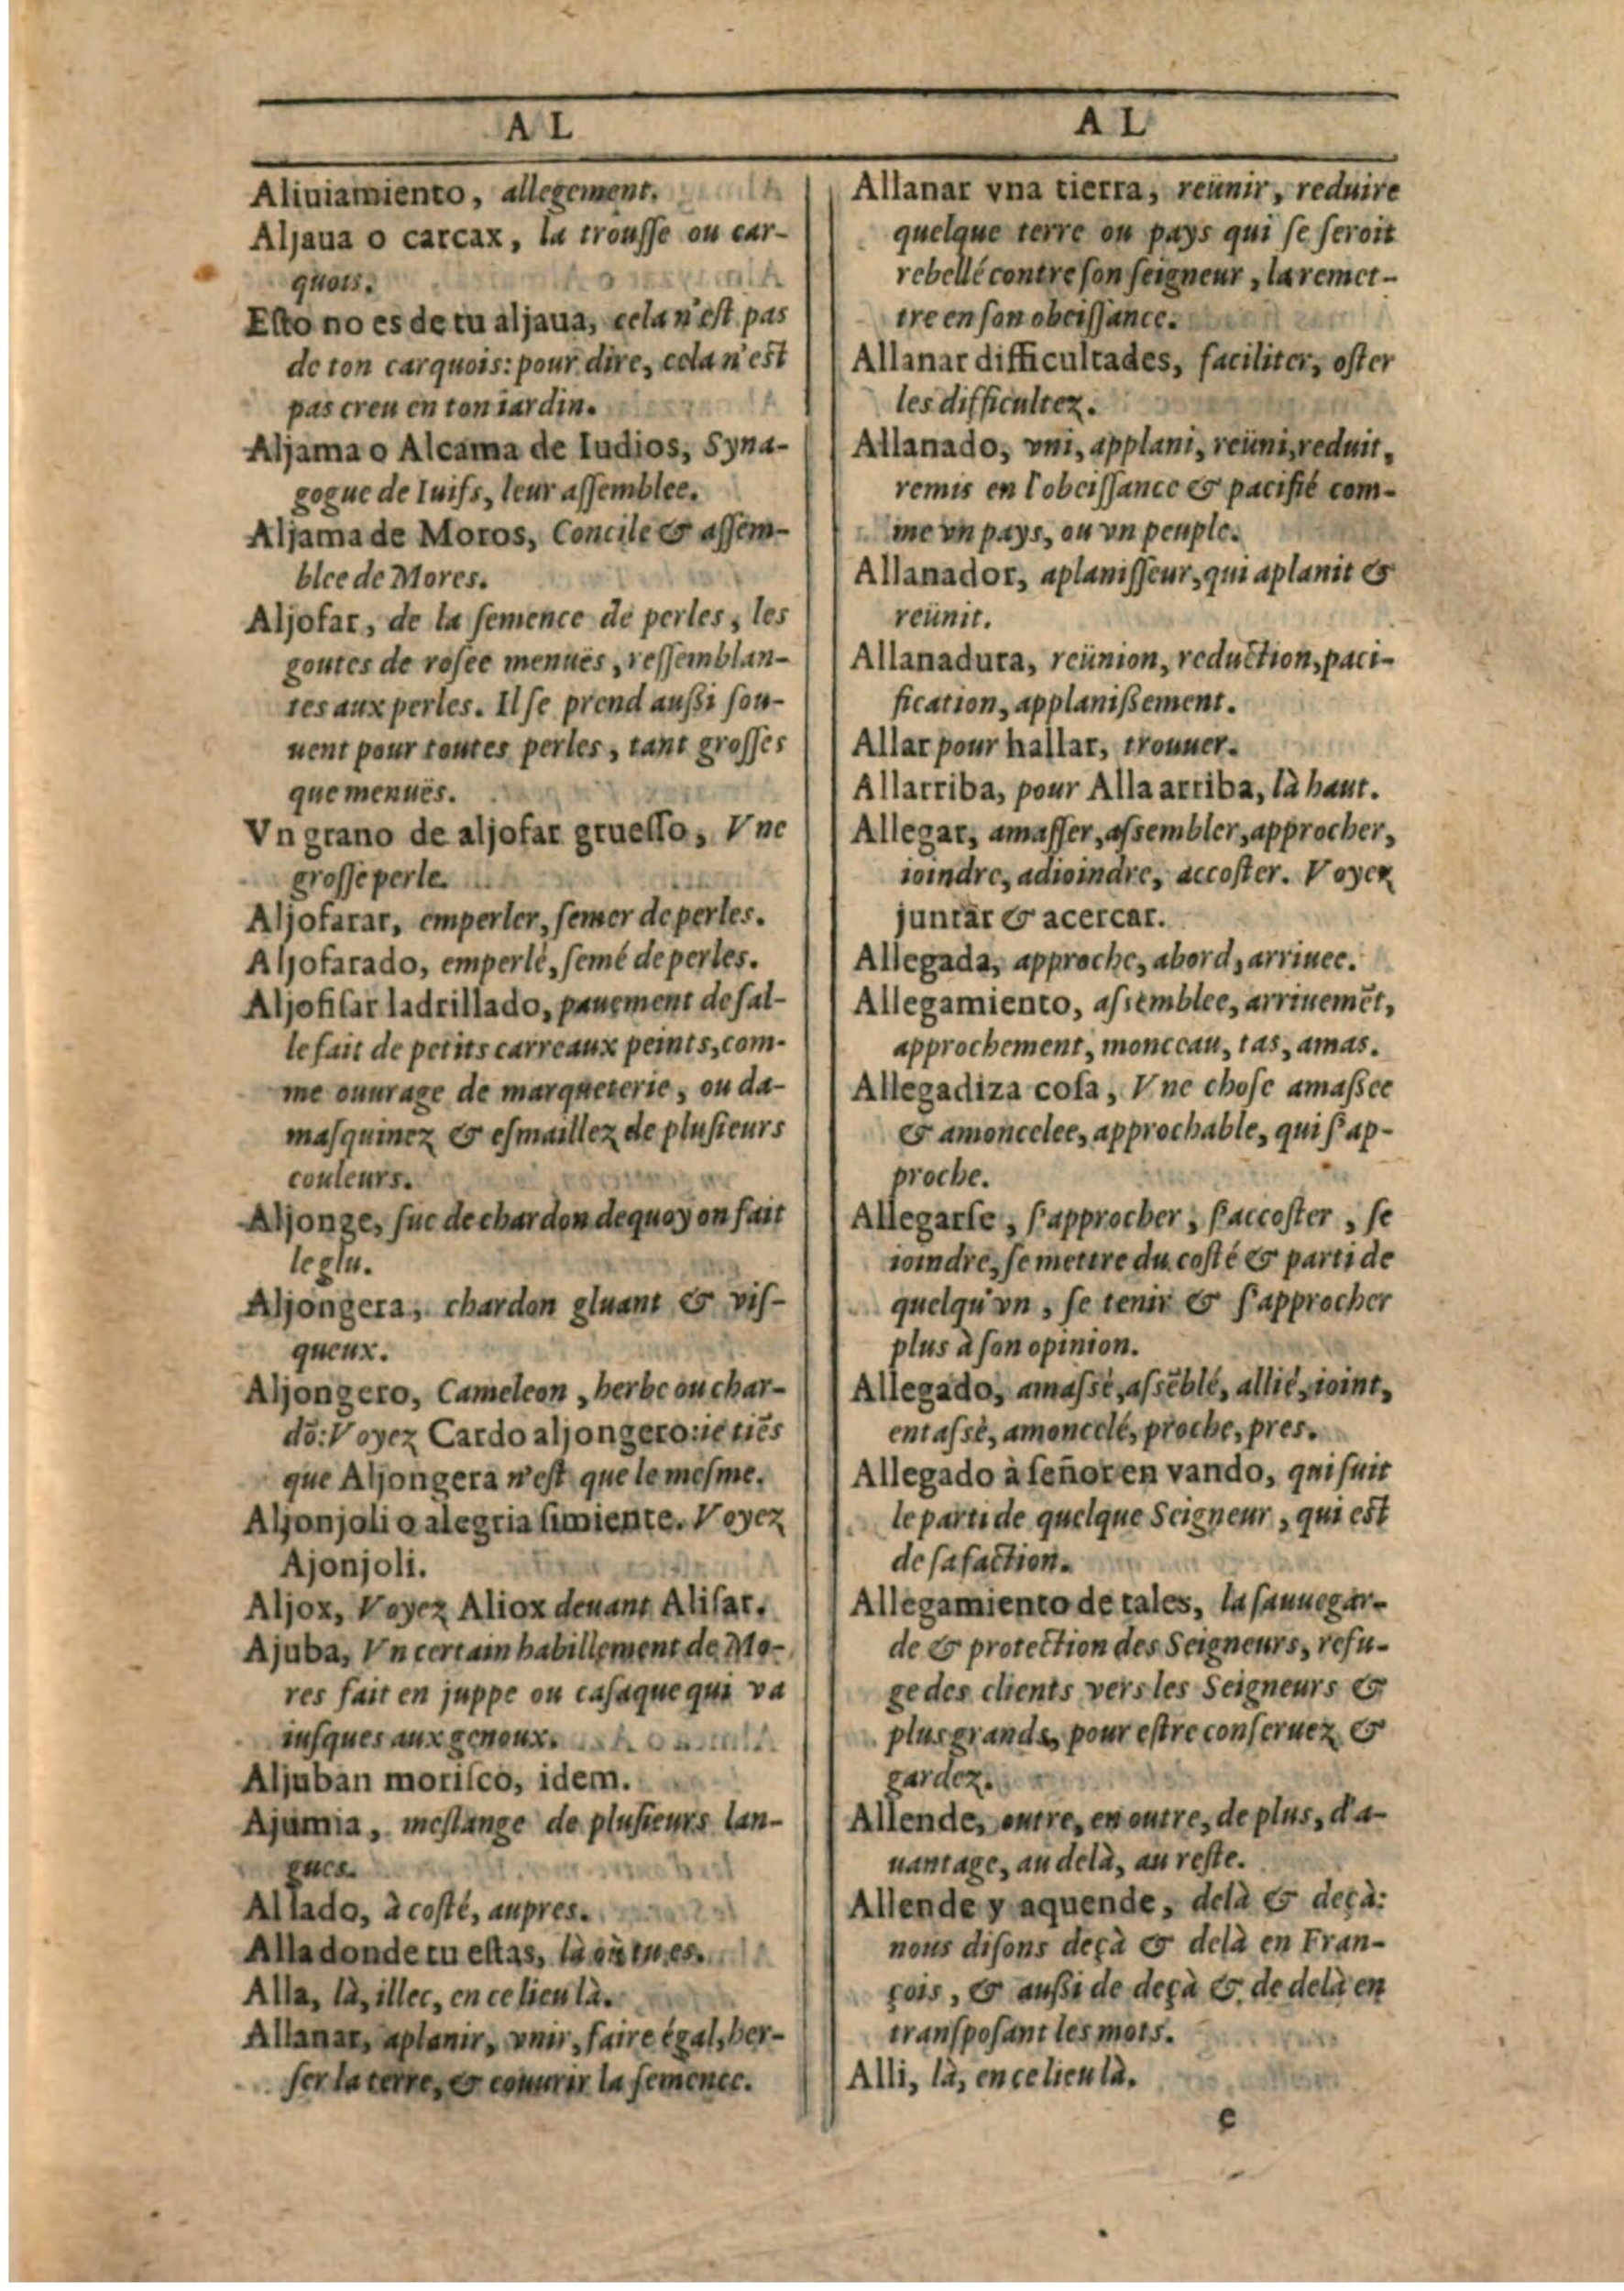 A L
Aliuiamiento, allegement.
Aljaua o carcax, la trousse ou car-
quois.
Esto no es de tu aljaua, cela n'est pas
de ton carquois: pour dire, cela n'est
pas creu en ton iardin.
Aljama o Alcama de Iudios, Syna-
gogue de Iuifs, leur assemblee.
Aljama de Moros, Concile & assem-
blee de Mores.
Aljofar, de la semence de perles, les
goutes de rosee menuës, ressemblan-
tes aux perles. Il se prend aussi sou-
uent pour toutes perles, tant grosses
que menuës.
Vn grano de aljofar gruesso, Vne
grosse perle.
Aljofarar, emperler, semer de perles.
Aljofarado, emperlé, semé de perles.
Aljofisar ladrillado, pauement de sal-
le fait de petits carreaux peints, com-
me ouurage de marqueterie, ou da-
masquinez & esmaillez de plusieurs
couleurs.
Aljonge, suc de chardon dequoy on fait
le glu.
Aljongera, chardon gluant & vis-
queux.
Aljongero, Cameleon, herbe ou char-
dõ: Voyez Cardo aljongero: ie tiẽs
que Aljongera n'est que le mesme.
Aljonjoli o alegria simiente. Voyez
Ajonjoli.
Aljox, Voyez Aliox deuant Alisar.
Ajuba, Vn certain habillement de Mo-
res fait en juppe ou casaque qui va
iusques aux genoux.
Aljuban morisco, idem.
Ajumia, meslange de plusieurs lan-
gues.
Al lado, à costé, aupres.
Alla donde tu estas, là où tu es.
Alla, là, illec, en ce lieu là.
Allanar, aplanir, vnir, faire égal, her-
ser la terre, & couurir la semence.
A L
Allanar vna tierra, reünir, reduire
quelque terre ou pays qui se seroit
rebellé contre son seigneur, la remet-
tre en son obeissance.
Allanar difficultades, faciliter, oster
les difficultez.
Allanado, vni, applani, reüni, reduit,
remis en l'obeissance & pacifié com-
me vn pays, ou vn peuple.
Allanador, aplanisseur, qui aplanit &
reünit.
Allanadura, reünion, reduction, paci-
fication, applanissement.
Allar pour hallar, trouuer.
Allarriba, pour Alla arriba, là haut.
Allegar, amasser, assembler, approcher,
ioindre, adioindre, accoster. Voyez
juntar & acercar.
Allegada, approche, abord, arriuee.
Allegamiento, assemblee, arriuemẽt,
approchement, monceau, tas, amas.
Allegadiza cosa, Vne chose amassee
& amoncelee, approchable, qui s'ap-
proche.
Allegarse, s'approcher, s'accoster, se
ioindre, se mettre du costé & parti de
quelqu'vn, se tenir & s'approcher
plus à son opinion.
Allegado, amassé, assẽblé, allié, ioint,
entassé, amoncelé, proche, pres.
Allegado à señor en vando, qui suit
le parti de quelque Seigneur, qui est
de sa faction.
Allegamiento de tales, la sauuegar-
de & protection des Seigneurs, refu-
ge des clients vers les Seigneurs &
plus grands, pour estre conseruez &
gardez.
Allende, outre, en outre, de plus, d'a-
uantage, au delà, au reste.
Allende y aquende, delà & deçà:
nous disons deçà & delà en Fran-
çois, & aussi de deçà & de delà en
transposant les mots.
Alli, là, en ce lieu là.
e